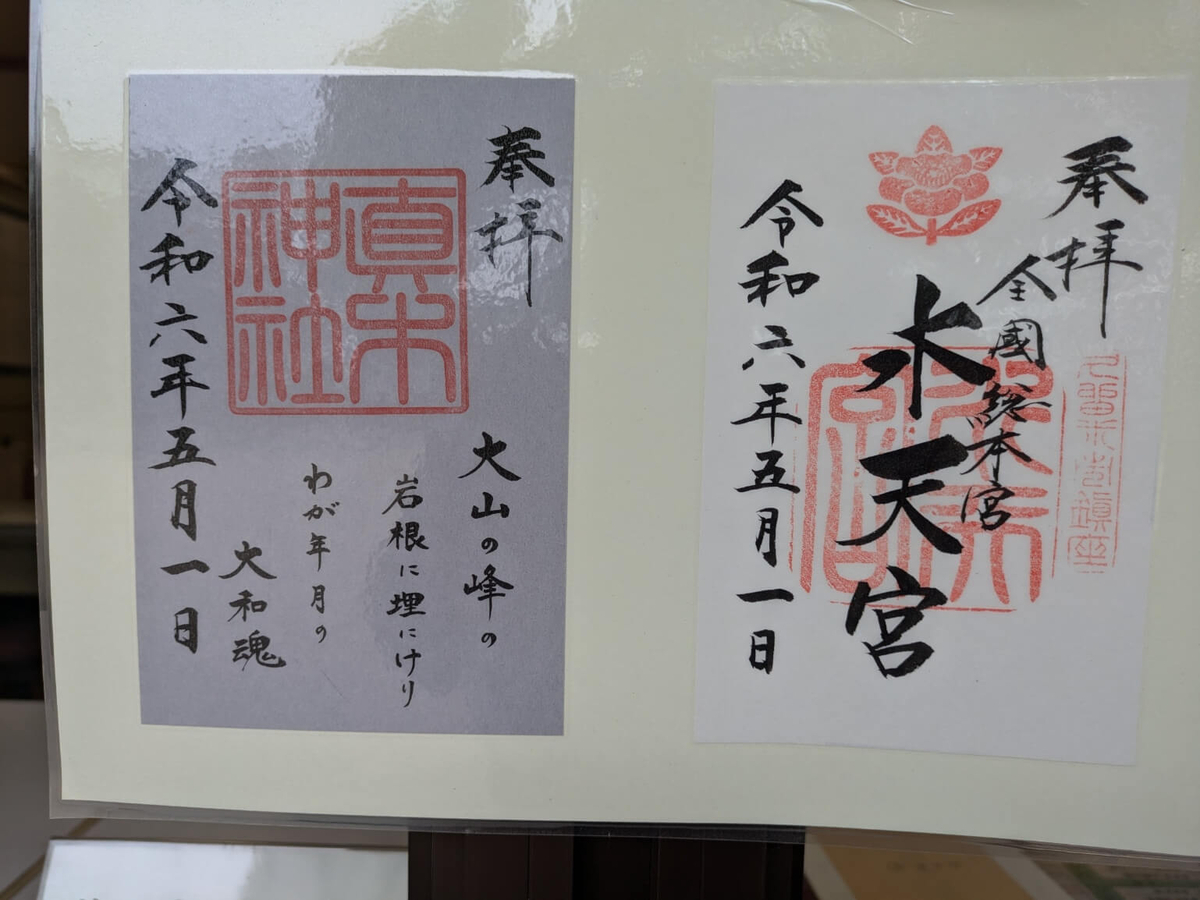 奉拝
大山の峰の
岩根に埋にけり
わが年月の
大和魂
真木神社
令和六年五月一日
奉拝
全國総本宮
水天宮
水天宮
令和六年五月一日